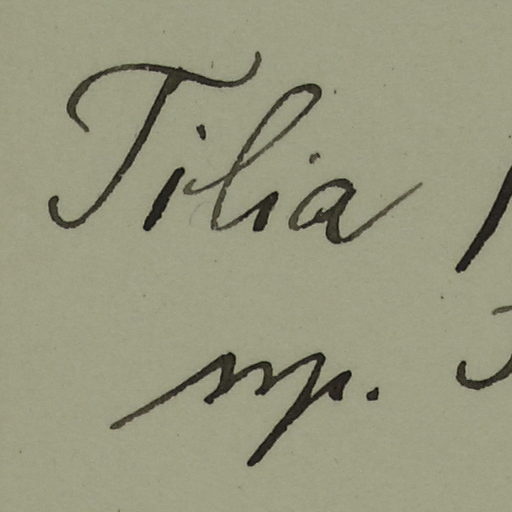 Tilia
sp.